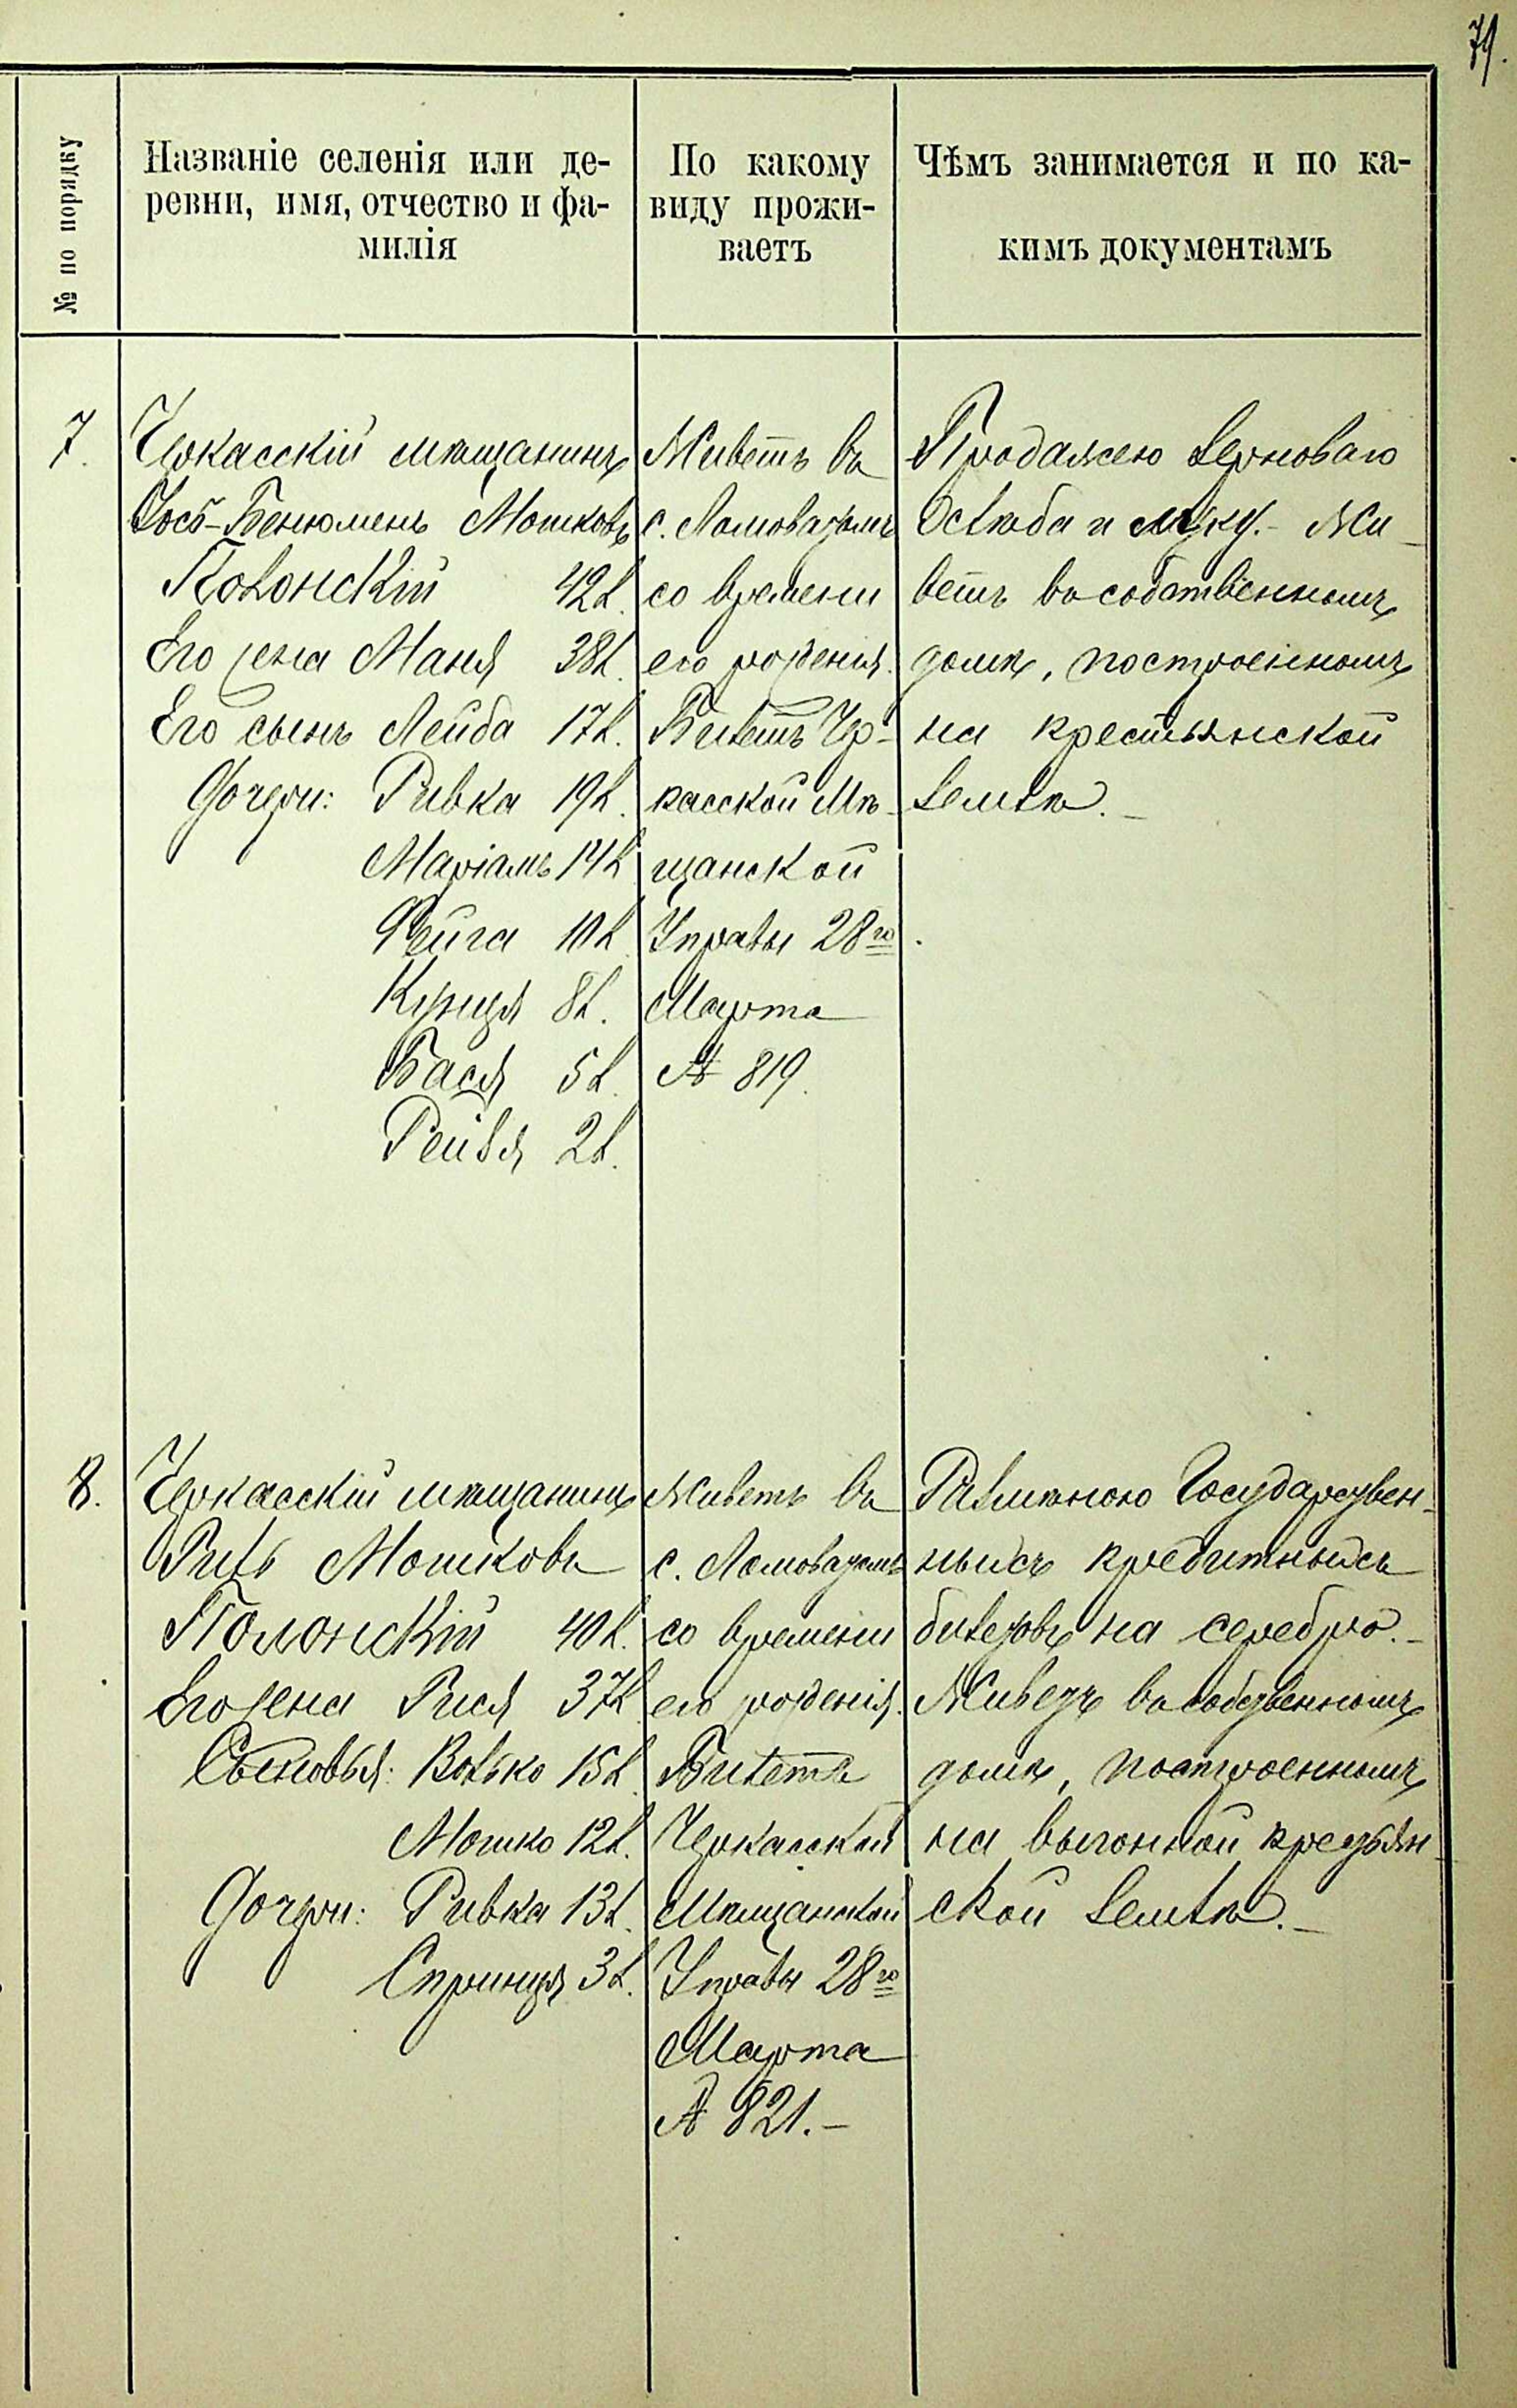 79.
№ по порядку
Названіе селенія или де-
ревни, имя, отчество и фа-
милія
По какому
виду прожи-
ваетъ
Чѣмъ занимается и по ка-
кимъ документамъ
7.
Черкасскій мѣщанинъ
Іосъ-Бенюменъ Мошковъ
Полонскій 42 л.
Его жена Маня 38 л.
Его сынъ Лейба 17 л.
Дочери: Ривка 19 л.
Маріамъ 14 л.
Фейга 10 л.
8 л.
Бася 5 л.
Рейзя 2 л.
Живетъ въ
с. Ломоватомъ
со времени
его рожденія.
Билетъ Чер-
касской Мѣ-
щанской
Управы 28го
Марта
№ 819.
Продажею зерноваго
хлѣба и муку. - Жи-
ветъ въ собственномъ
домѣ, построенномъ
на крестьянской
землѣ. -
8.
Черкасскій мѣщанинъ
Мошковъ
Полонскій 40 л.
Его жена Рися 37 л.
Сыновья: Волько 15 л.
Мошко 12 л.
Дочери: Ривка 13 л.
Спринця 3 л.
Живетъ въ
с. Ломоватомъ
со времени
его рожденія.
Билетъ
Черкасской
Мѣщанской
Управы 28го
Марта
№ 821. -
Размѣною Государствен-
ныхъ кредитныхъ
билетовъ на серебро. -
Живетъ въ собственномъ
домѣ, построенномъ
на выгонной крестьян-
ской землѣ. -